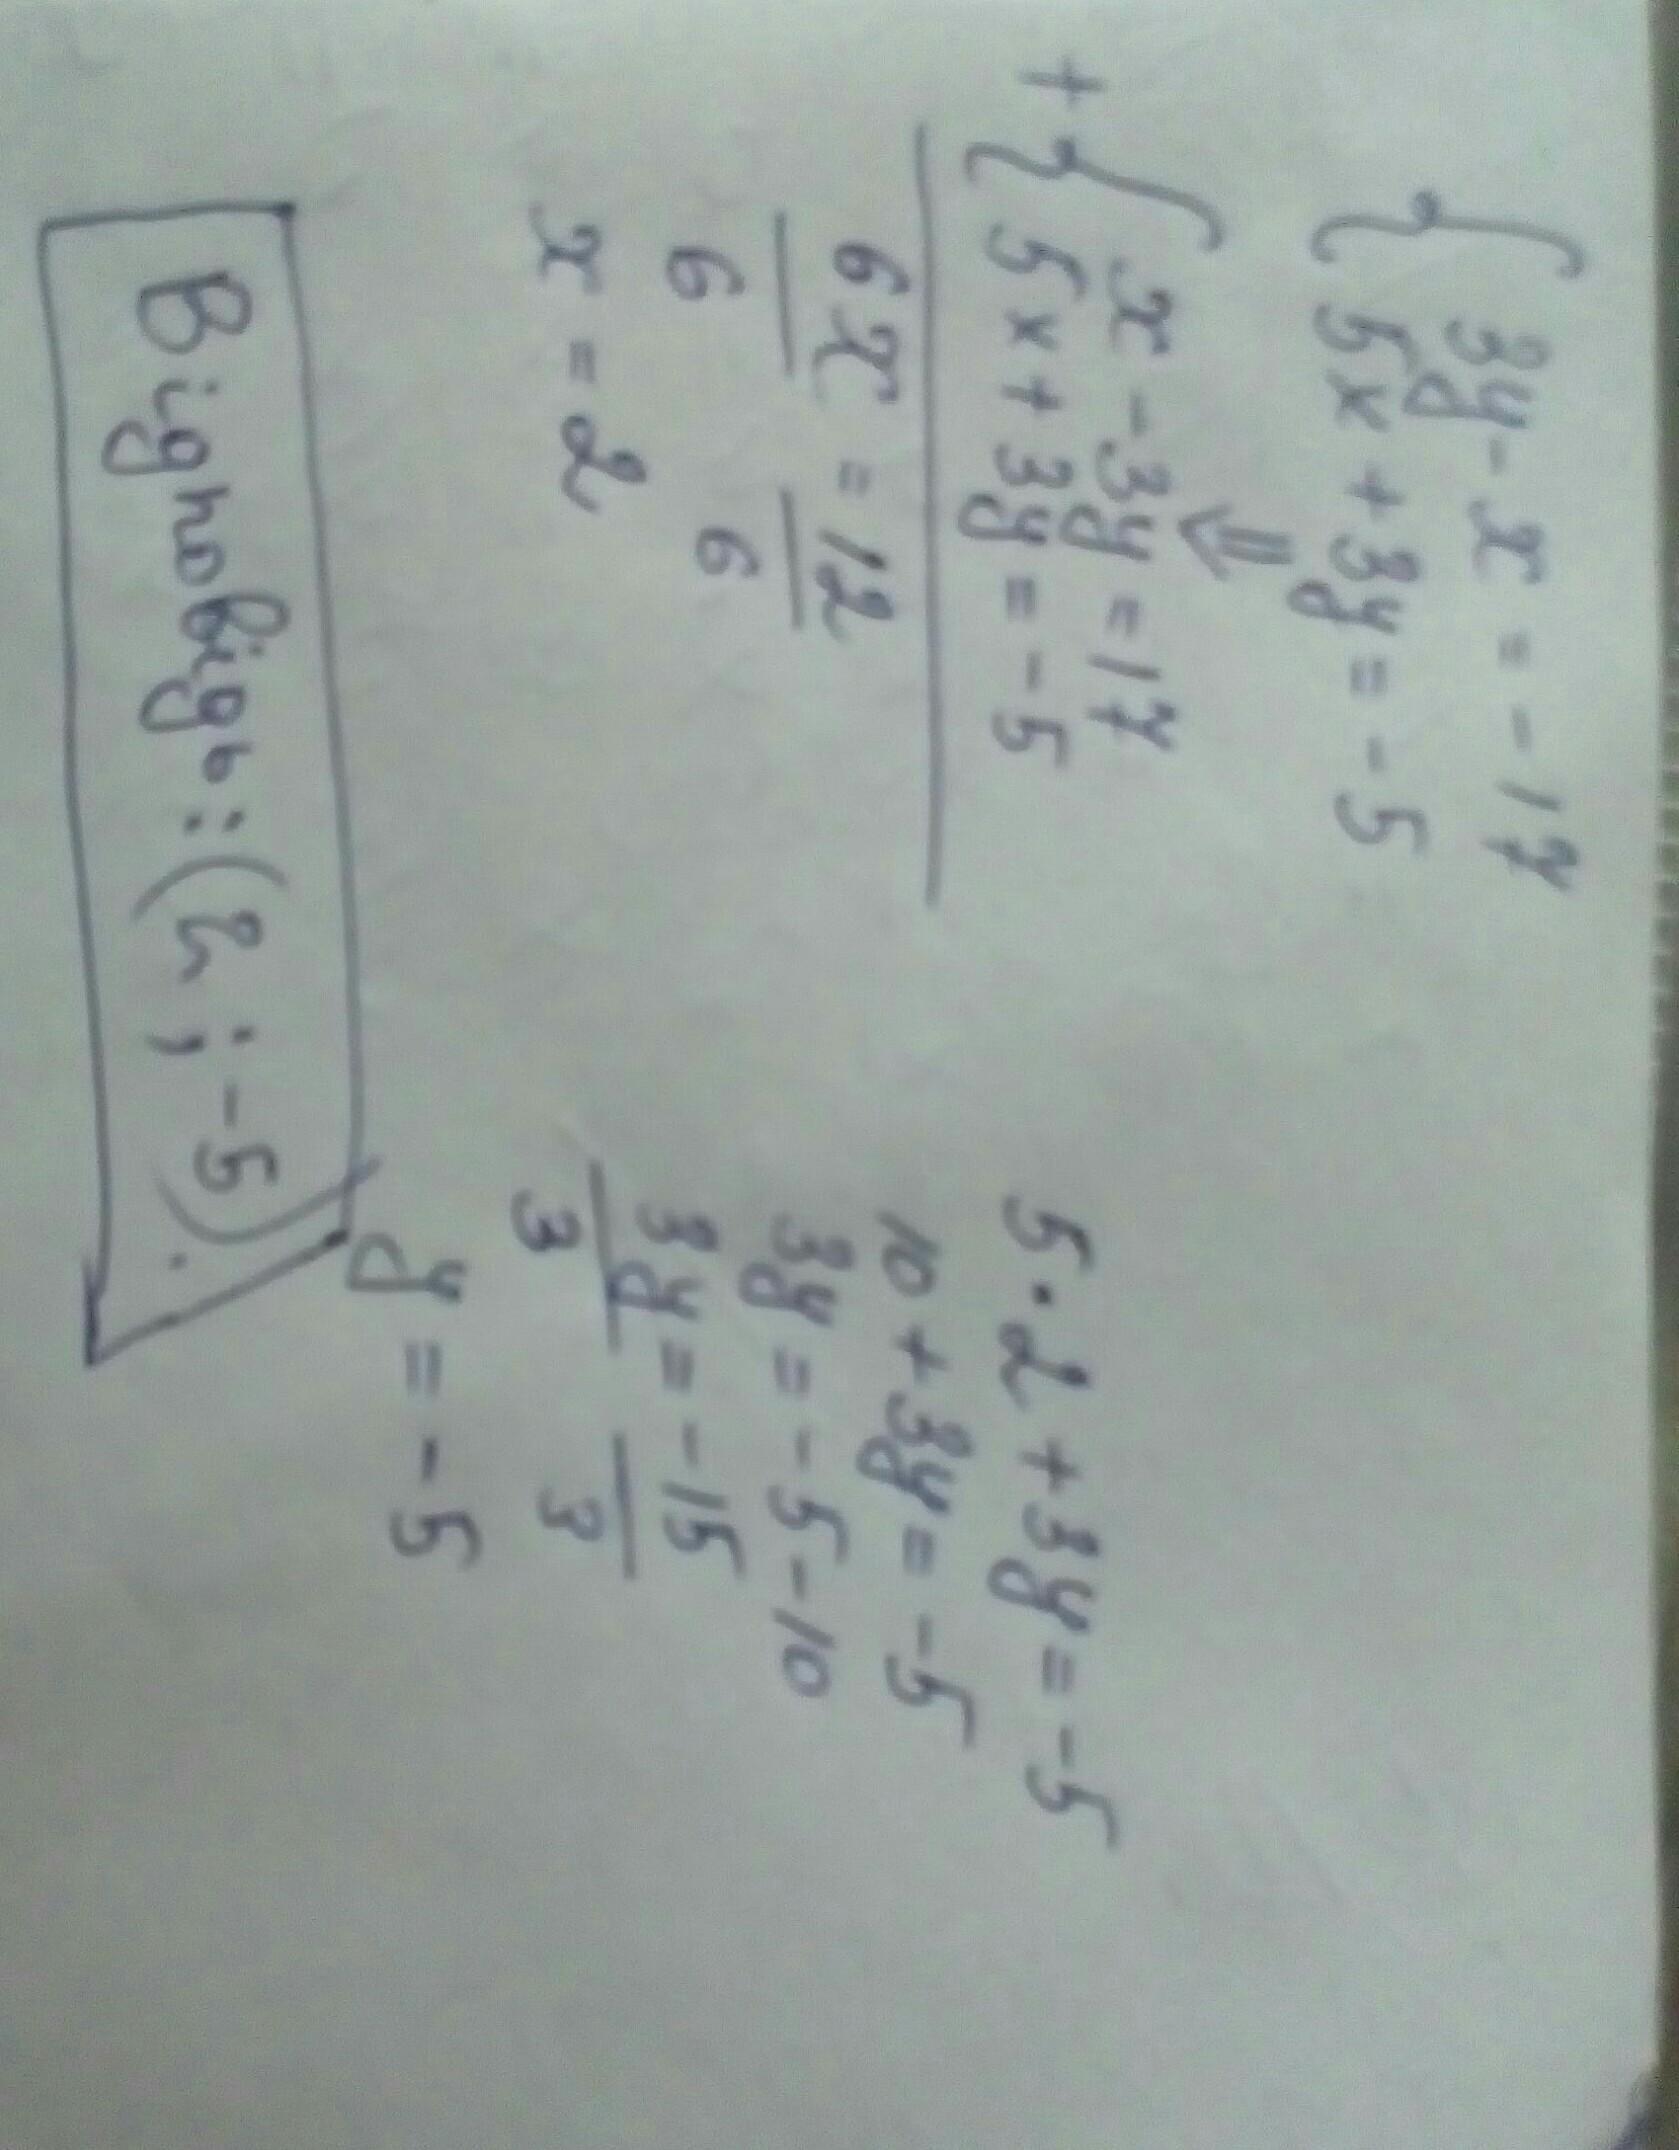 { 3y - x = -17
5x + 3y = -5
⇓
+ { x - 3y = 17
5x + 3y = -5
6x = 12
6 6
x = 2
5 · 2 + 3y = -5
10 + 3y = -5
3y = -5 - 10
3y = -15
3 3
y = -5
Відповідь: (2 ; -5).